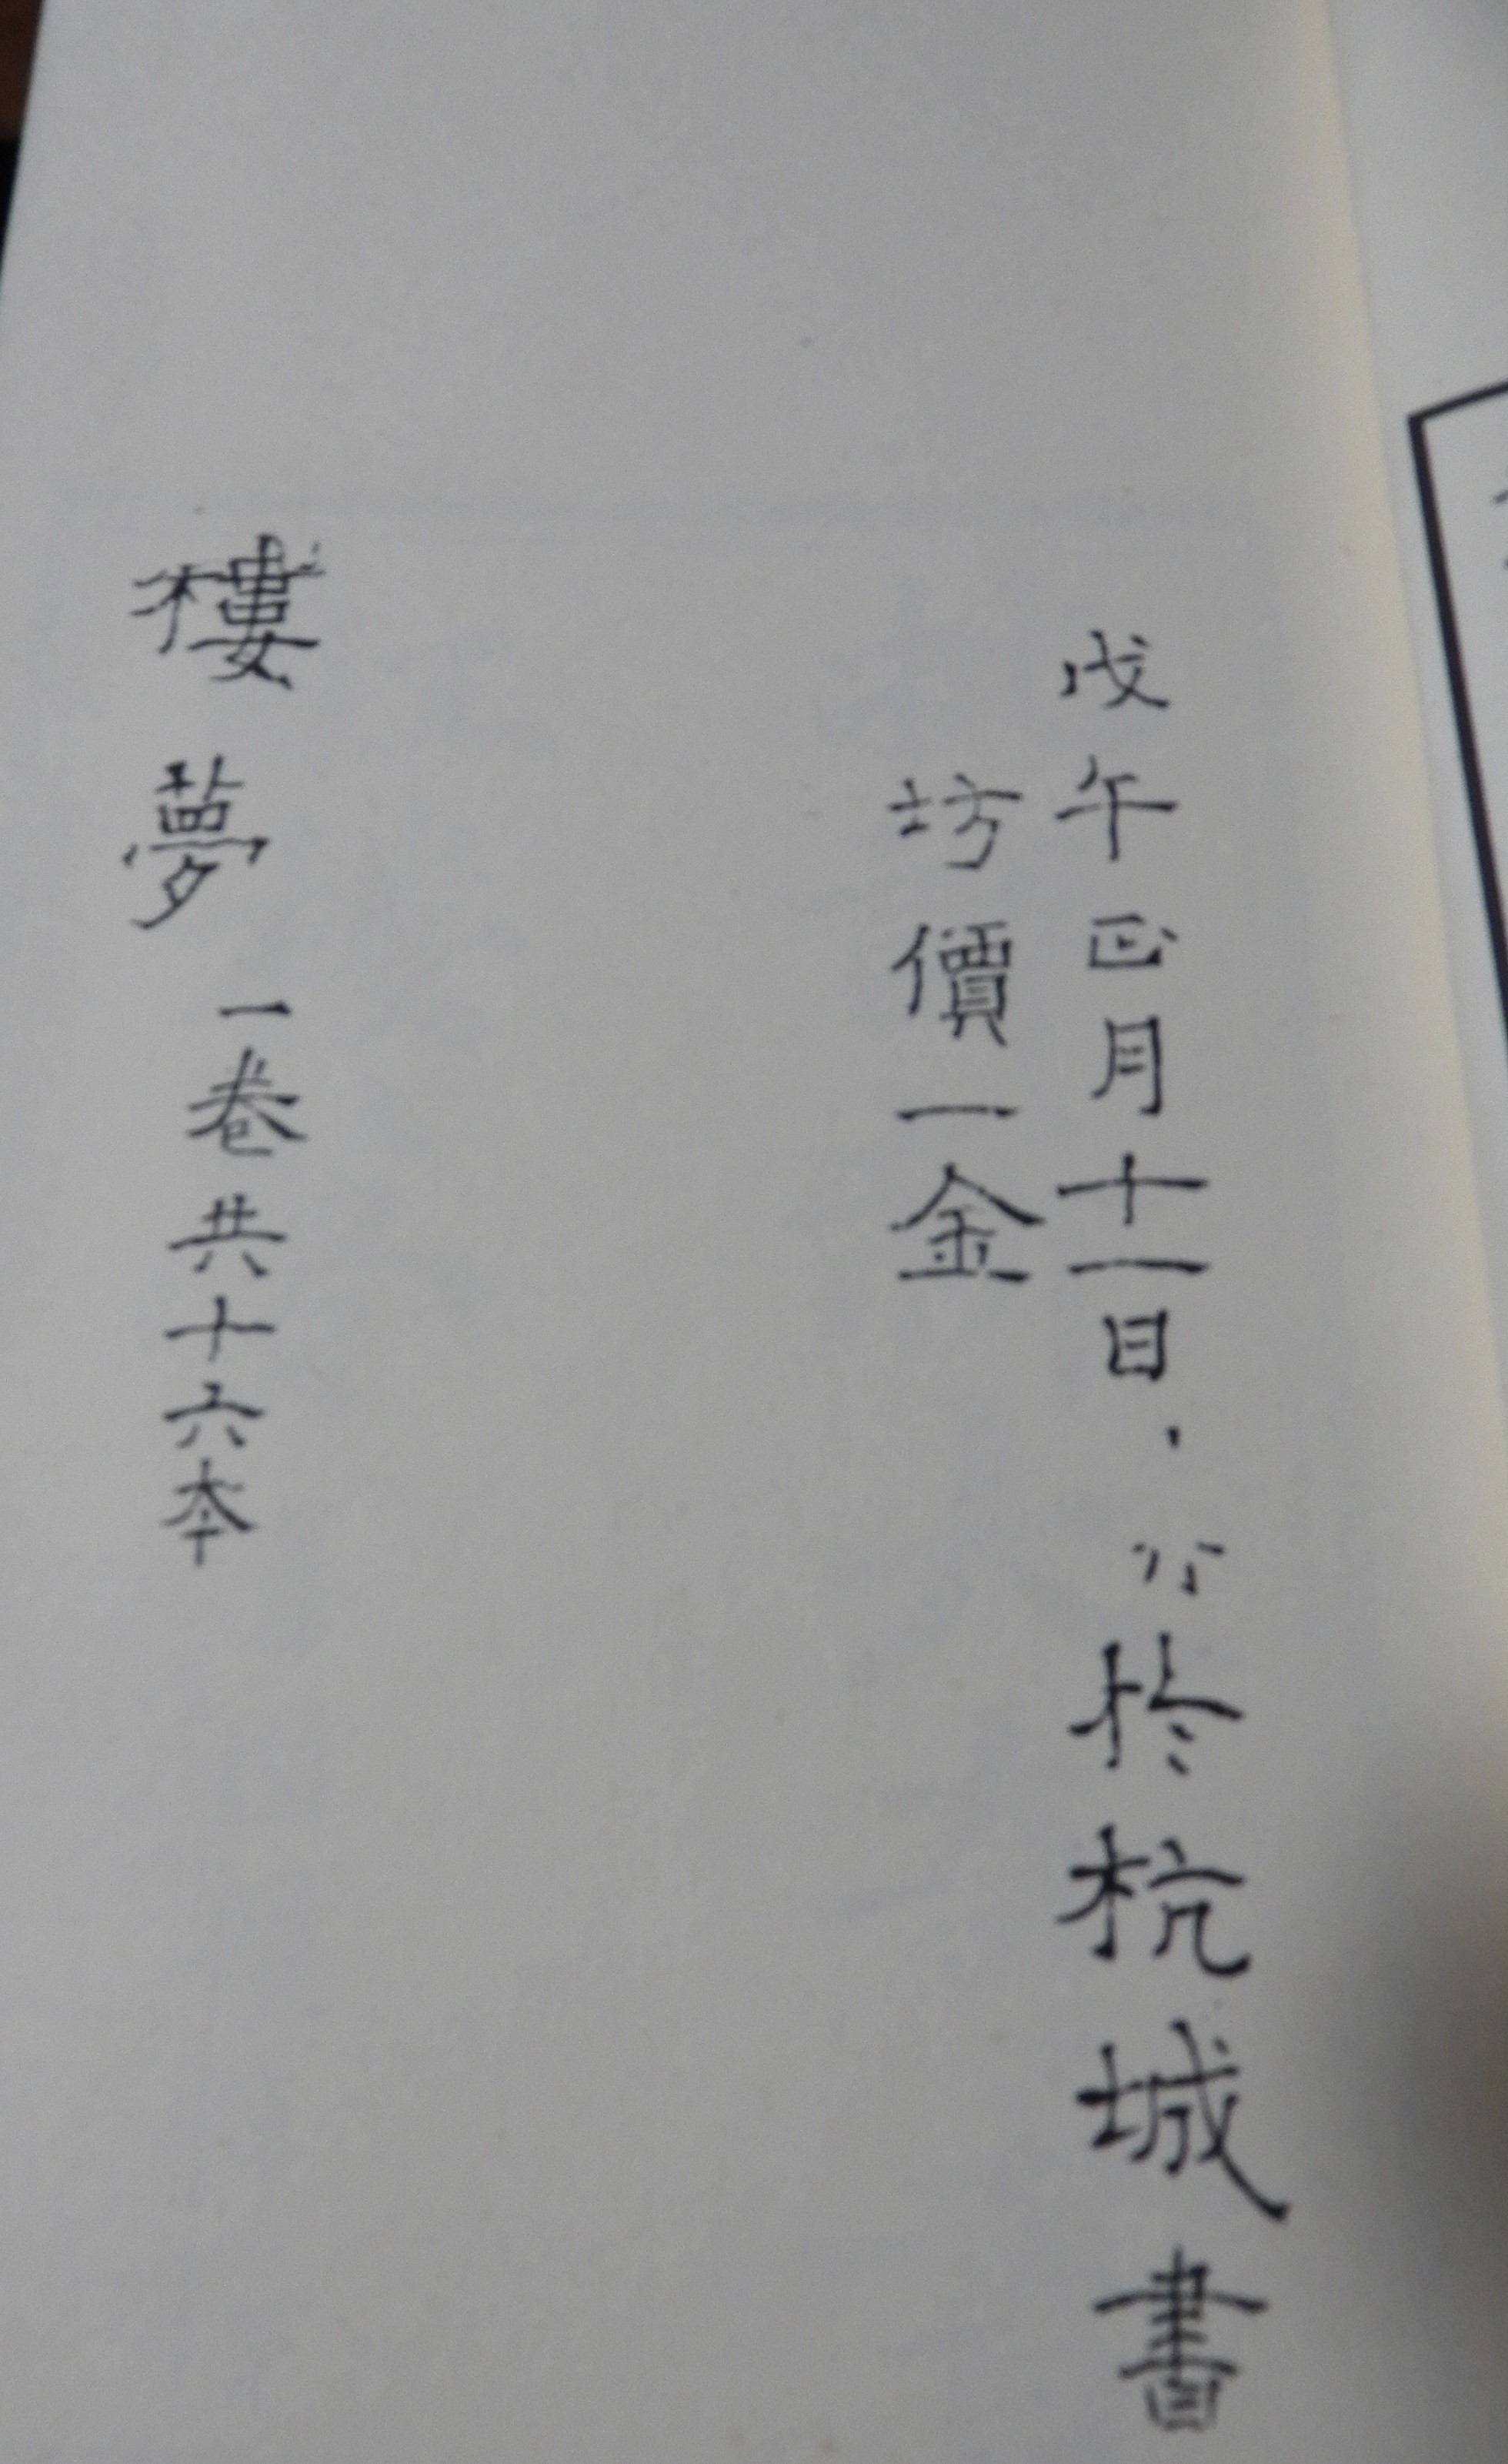 戊午正月十一日，於杭城書
坊價一金
樓夢一卷共十六本